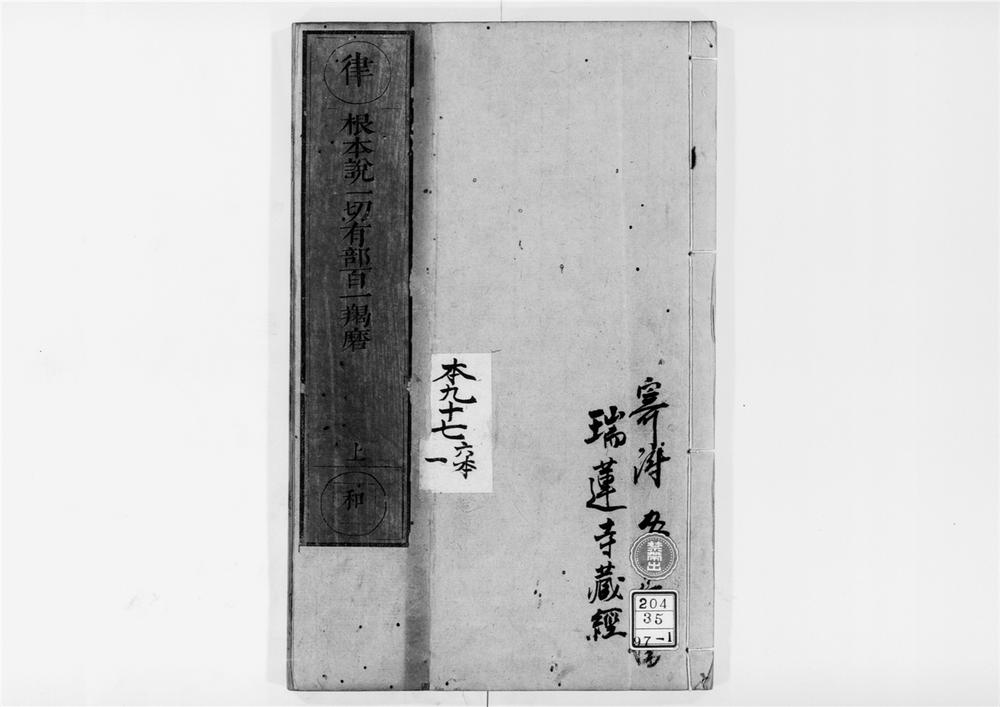 律
根本說一切有部百一羯磨
上
和
本九十七
六本
一
瑞蓮寺藏經
禁帶出
204
35
97-1